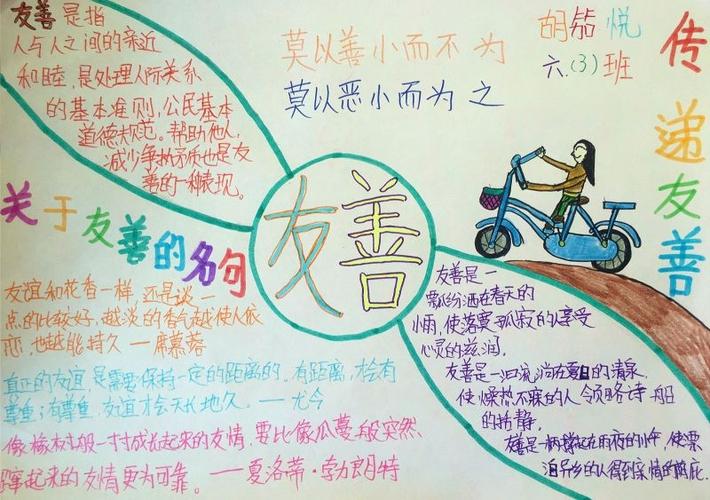 友善是指
人与人之间的亲近
和睦,是处理人际关系
的基本准则,公民基本
道德规范。帮助他人,
减少争执矛盾也是友
善的一种表现。
莫以善小而不为
莫以恶小而为之
胡 悦
六.(3)班
传递友善
友善
关于友善的名句
友谊和花香一样,还是淡一
点的比较好,越淡的香气越使人依
恋,也越能持久 — 席慕蓉
真正的友谊是需要保持一定的距离的。有距离,才会有
尊重;有尊重,友谊才会天长地久。——尤今
像橡树般一寸寸成长起来的友情,要比像瓜蔓般突然
蹿起来的友情更为可靠。——夏洛蒂·勃朗特
友善是一
飘纷洒在春天的
小雨,使落寞孤寂的人享受
心灵的滋润。
友善是一泗流淌在夏日的清泉,
使燥热不寐的人领略诗般
的恬静。
友善是一柄撑起在雨夜的小伞,使漂
泊异乡的人得到亲情的荫庇。